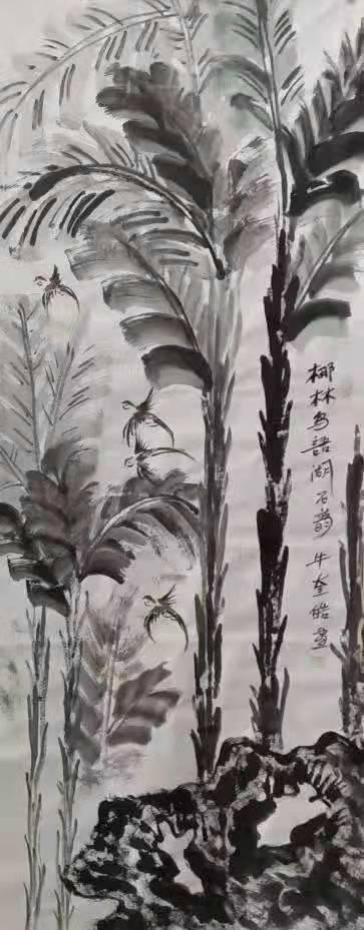 椰林鸟语湖石韵 牛奎皓画